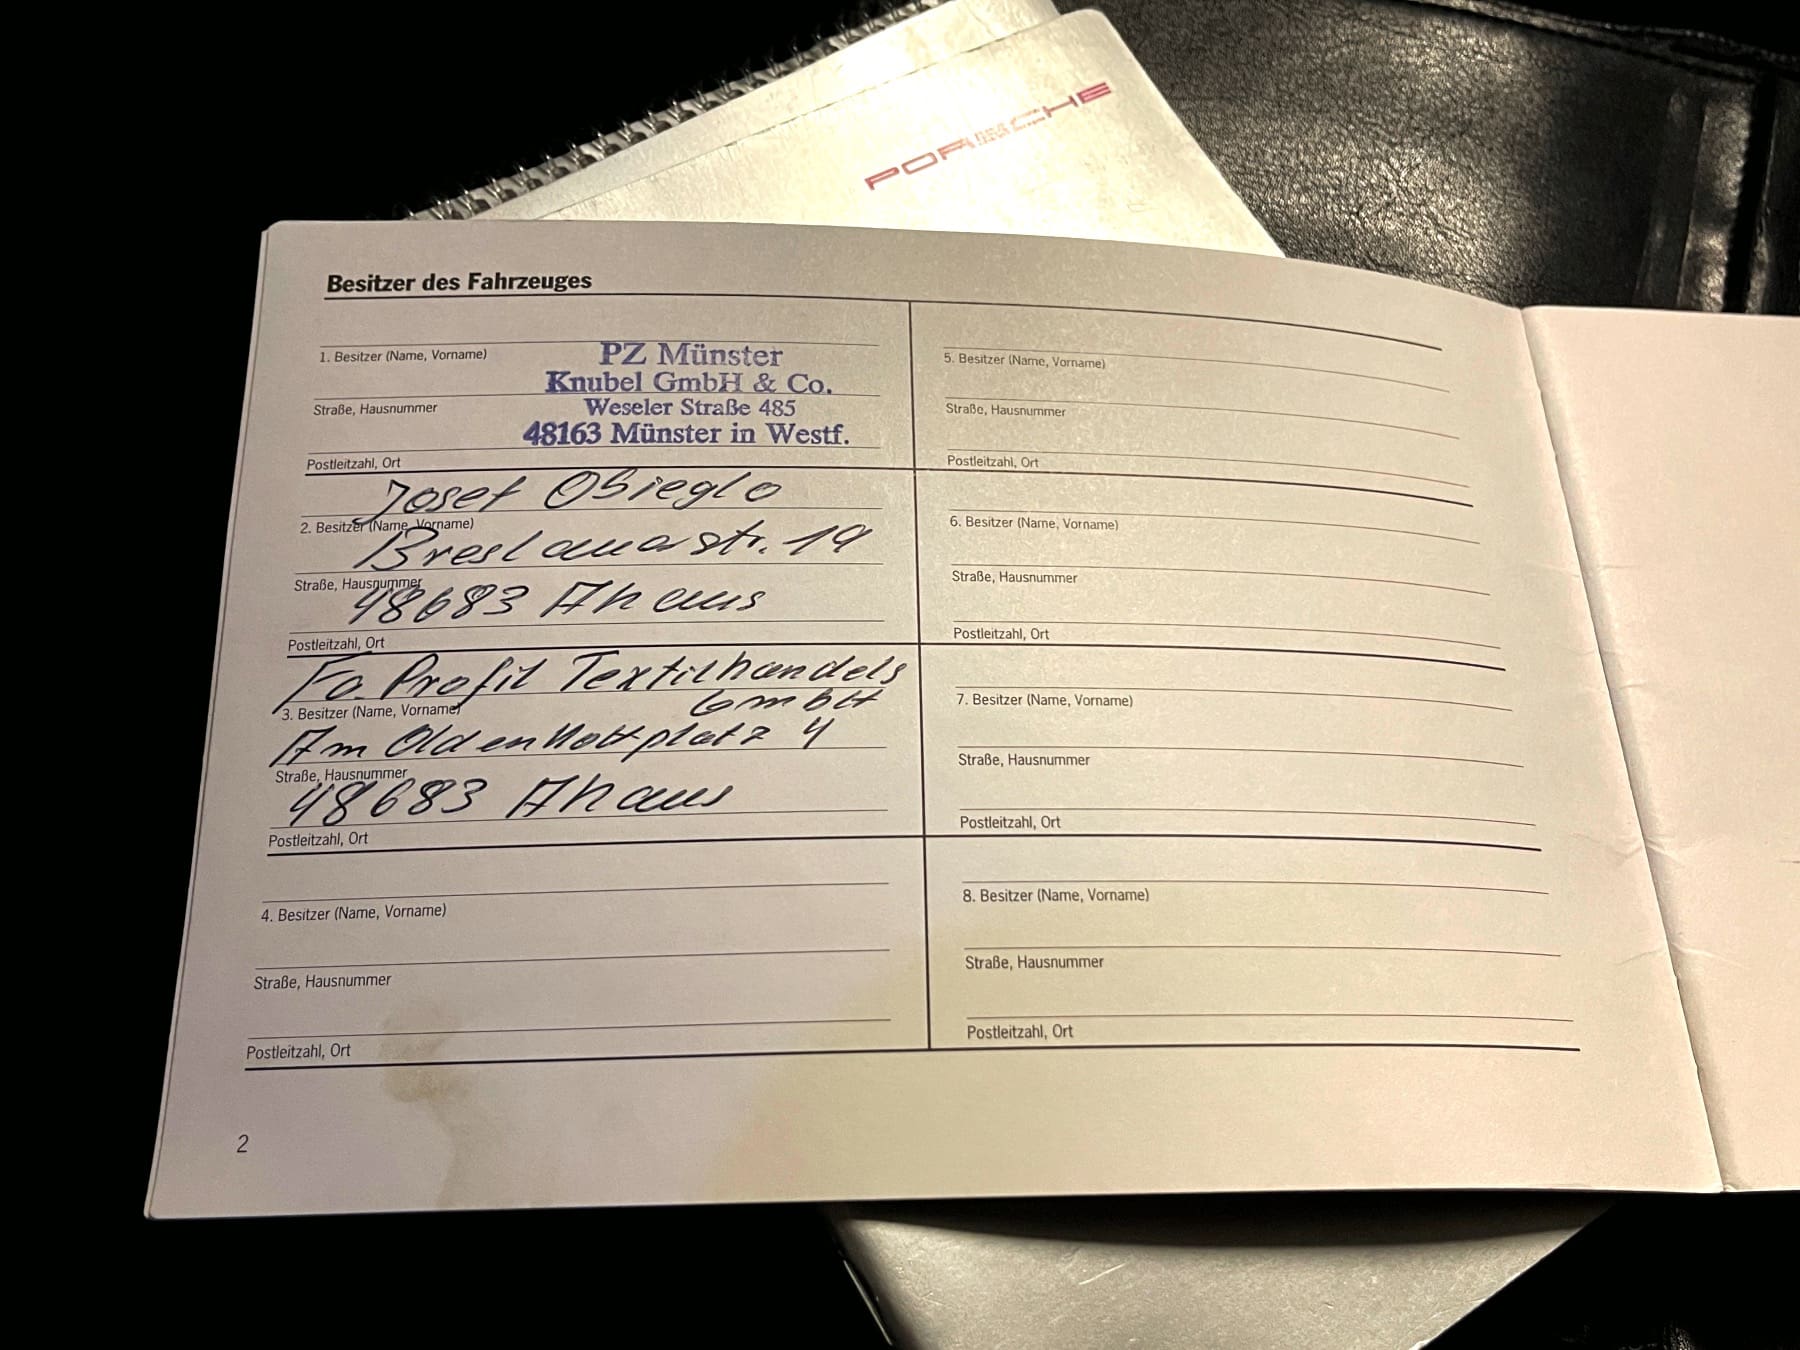 PORSCHE
Besitzer des Fahrzeuges
PZ Münster
1. Besitzer (Name, Vorname)
Knubel GmbH & Co.
Weseler Straße 485
Straße, Hausnummer
48163 Münster in Westf.
Postleitzahl, Ort
Josef Obieglo
2. Besitzer (Name, Vorname)
Breslauerstr. 19
Straße, Hausnummer
48683 Ahaus
Postleitzahl, Ort
Fa Profil Textilhandels
GmbH
3. Besitzer (Name, Vorname)
Am Oldenkottplatz 4
Straße, Hausnummer
48683 Ahaus
Postleitzahl, Ort
4. Besitzer (Name, Vorname)
Straße, Hausnummer
Postleitzahl, Ort
5. Besitzer (Name, Vorname)
Straße, Hausnummer
Postleitzahl, Ort
6. Besitzer (Name, Vorname)
Straße, Hausnummer
Postleitzahl, Ort
7. Besitzer (Name, Vorname)
Straße, Hausnummer
Postleitzahl, Ort
8. Besitzer (Name, Vorname)
Straße, Hausnummer
Postleitzahl, Ort
2